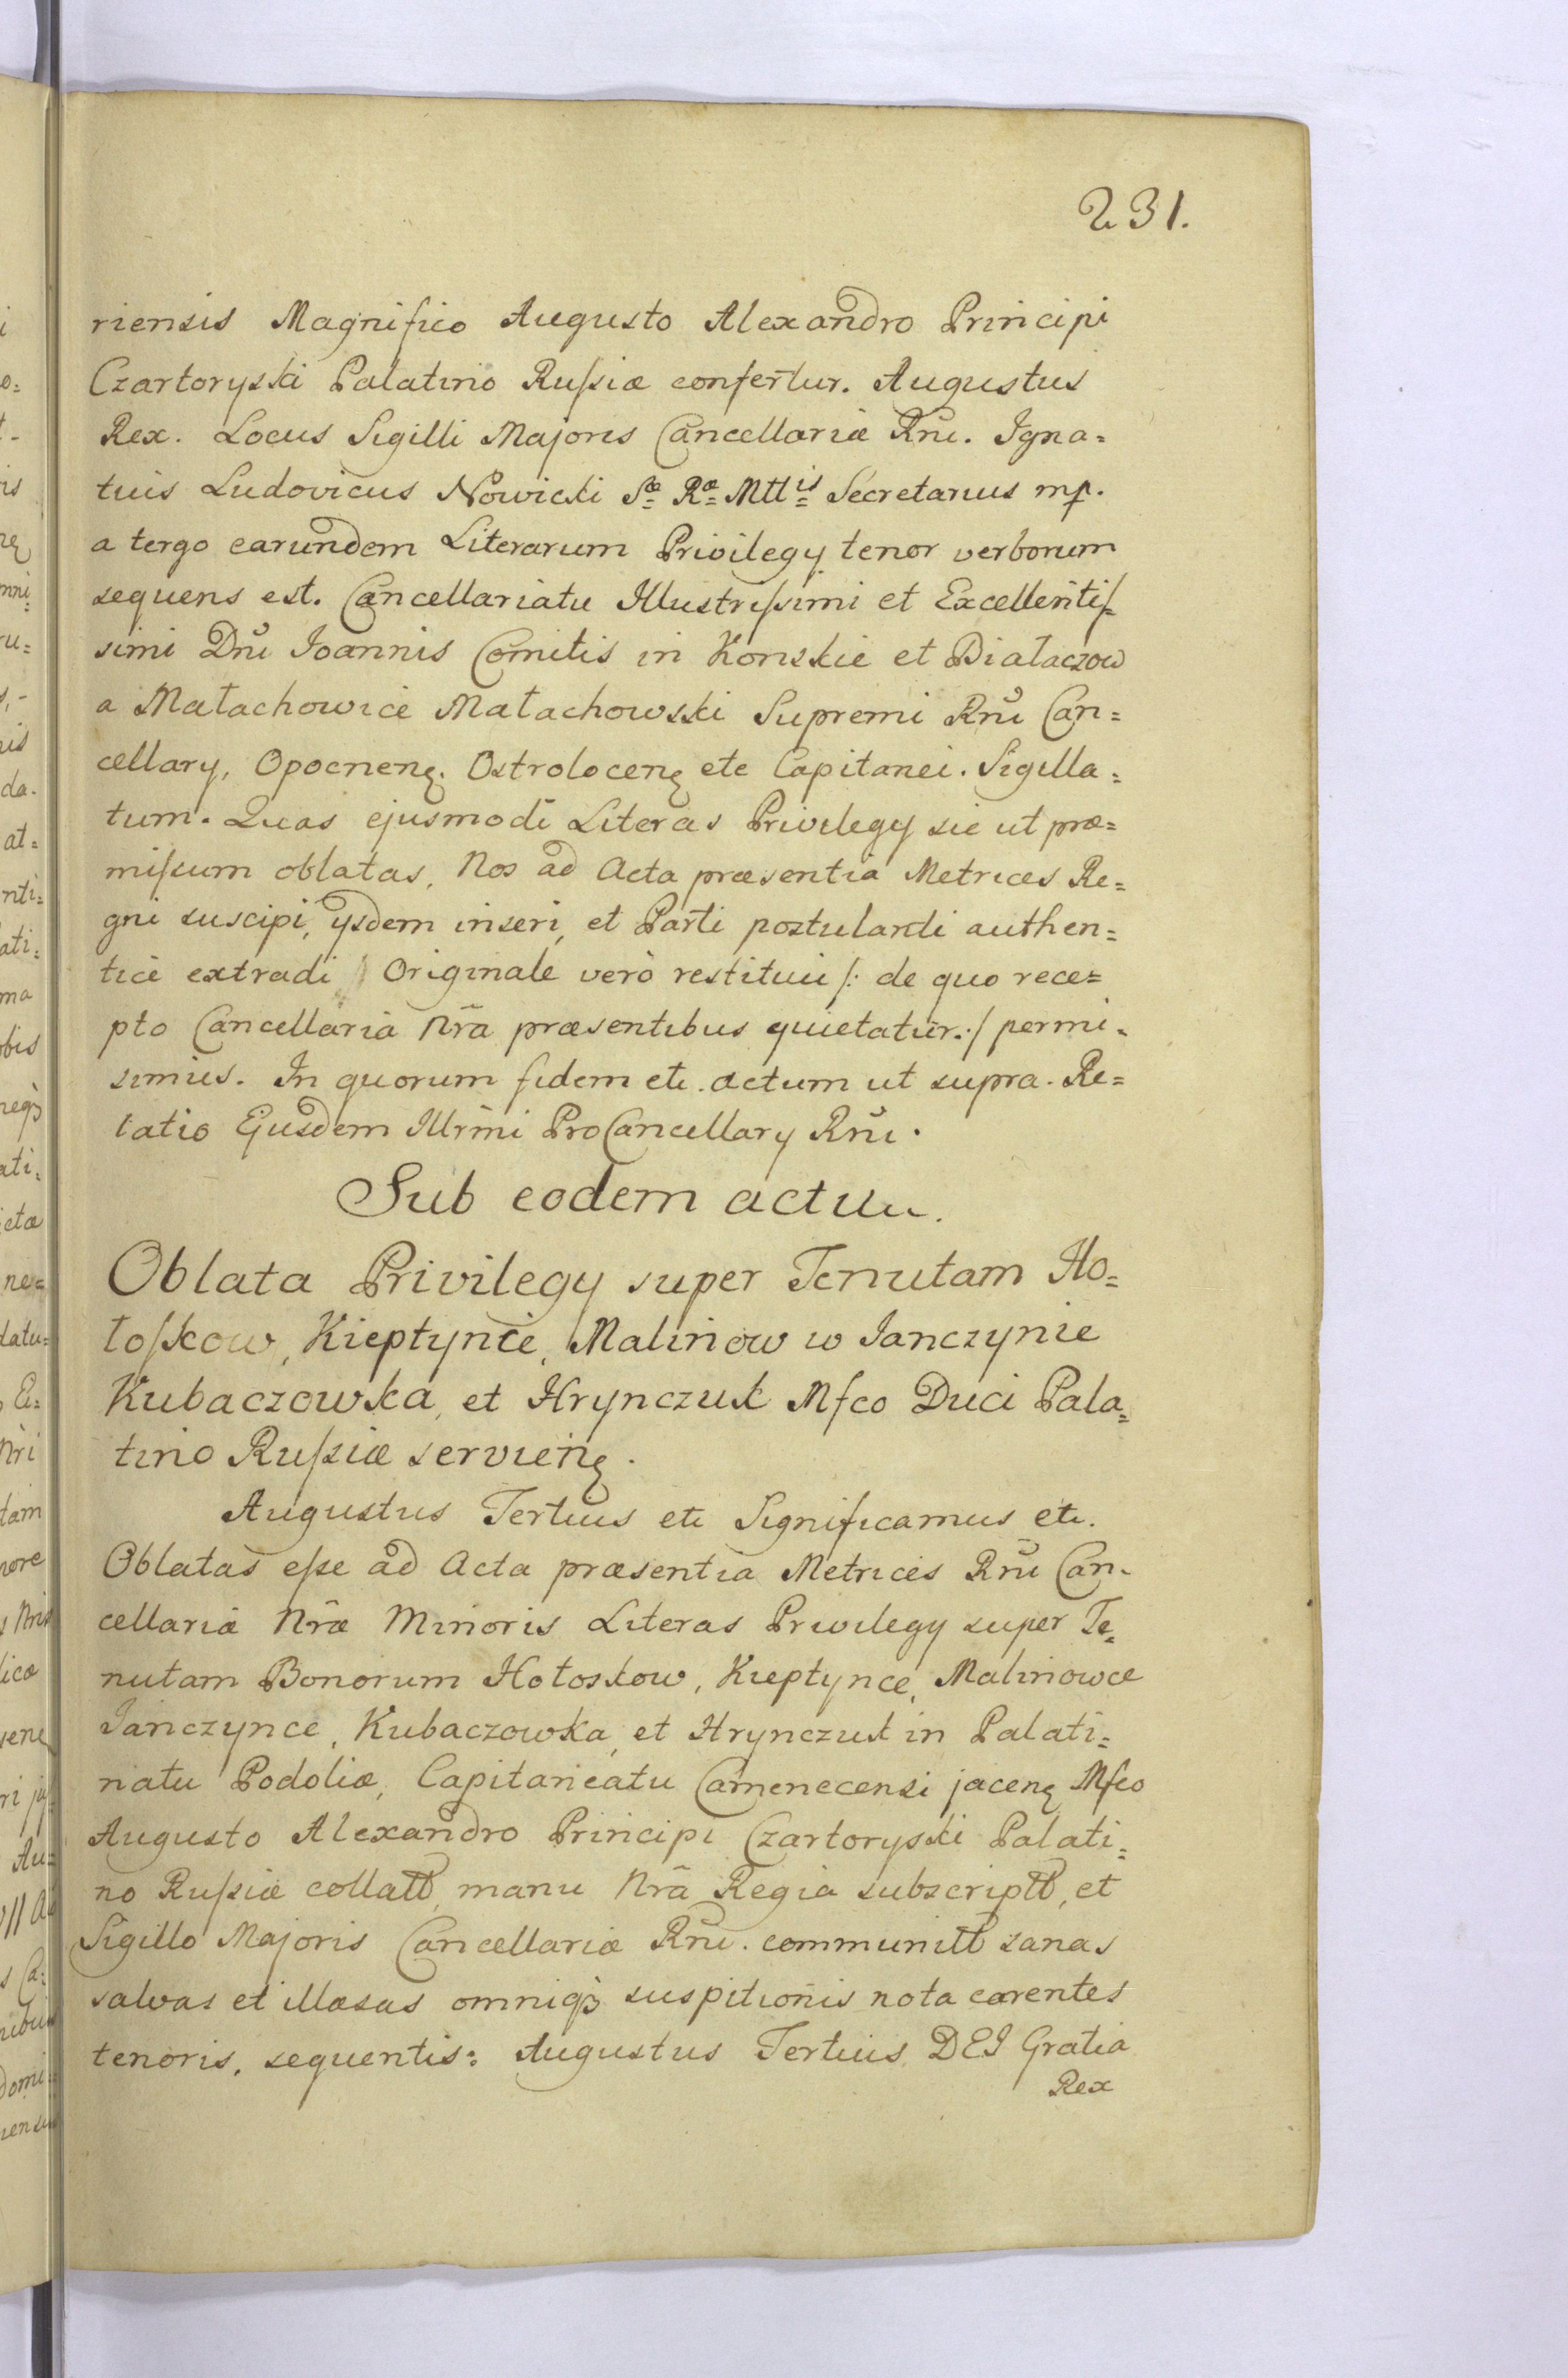 231.
riensis Magnifico Augusto Alexandro Principi
Czartoryski Palatino Rußiæ confertur. Augustus
Rex. Locus Sigilli Majoris Cancellariæ Rñi. Igna=
tius Ludovicus Nowicki Sæ Ræ Mttis Secretarius mp.
a tergo earundem Literarum Privilegy tenor verborum
sequens est. Cancellariatu Illustrißimi et Excellentis=
simi Dñi Joannis Comitis in Konskie et Białaczow
a Małachowice Małachowski Supremi Rñi Can=
cellary, Opocneñ. Ostroloceñ etc Capitanei. Sigilla=
tum. Quas ejusmodi Literas Privilegy sic ut præ=
mißum oblatas, Nos ad Acta præsentia Metrices Re=
gni suscipi, ysdem inseri, et Parti postulanti authen=
ticè extradi Originale verò restitui /: de quo rece=
pto Cancellaria Nrã præsentibus quietatur :/ permi=
simus. In quorum fidem etc. actum ut supra. Re=
latio Ejusdem Illrmi ProCancellary Rñi.
Sub eodem actu.
Oblata Privilegy super Tenutam Ho=
łoßkow, Kieptynce, Malinow w Janczynie
Kubaczowska, et Hrynczuk Mfco Duci Pala=
tino Rußiæ servieñ.
Augustus Tertius etc Significamus etc.
Oblatas eße ad Acta præsentia Metrices Rñi Can=
cellariæ Nræ Minoris Literas Privilegy super Te=
nutam Bonorum Hołoskow, Kieptynce, Malinowce
Janczynce, Kubaczowka, et Hrynczuk in Palati=
natu Podoliæ, Capitaneatu Camenecensi jaceñ Mfco
Augusto Alexandro Principi Czartoryski Palati=
no Rußiæ collatt, manu Nrã Regia subscriptt, et
Sigillo Majoris Cancellariæ Rñi. communitt sanas
salvas et illæsas omniq3 suspitionis nota carentes
tenoris, sequentis: Augustus Tertius DEI Gratia
Rex